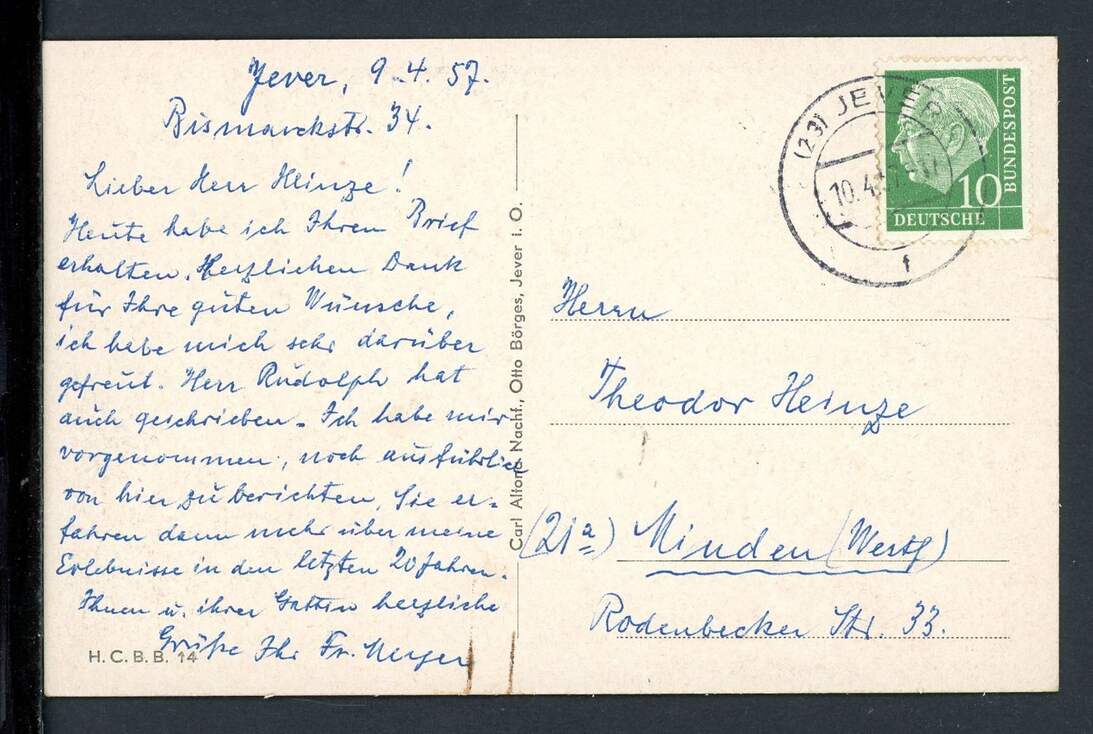 Jever, 9.4.57.
Bismarckstr. 34.
Lieber Herr Heinze!
Heute habe ich Ihren Brief
erhalten. Herzlichen Dank
für Ihre guten Wünsche,
ich habe mich sehr darüber
gefreut. Herr Rudolph hat
auch geschrieben. Ich habe mir
vorgenommen, noch ausführlich
von hier zu berichten, Sie er-
fahren dann mehr über meine
Erlebnisse in den letzten 20 Jahren.
Ihnen u. ihrer Gattin herzliche
Grüße Ihr Fr.
H.C.B.B. 14
Carl Altona Nachf., Otto Börges, Jever i. O.
(23) JEVER
10.4.57
f
10
DEUTSCHE
BUNDESPOST
Herrn
Theodor Heinze
(21a) Minden (Westf)
Rodenbecker Str. 33.